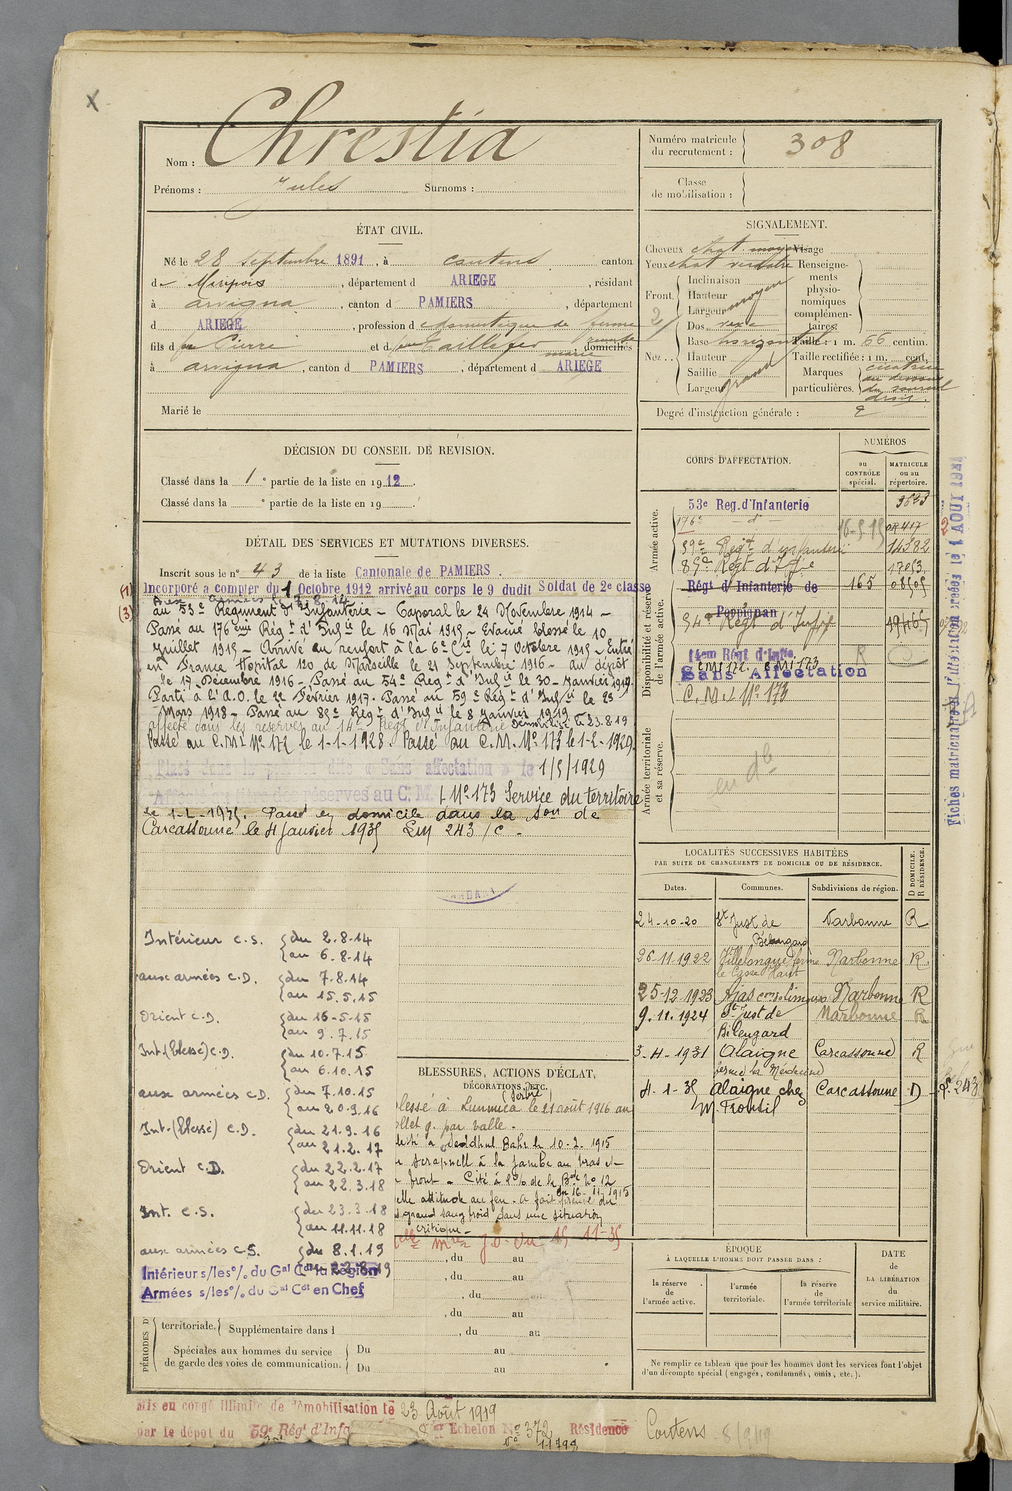 Nom : Chrestia
Prénoms : Jules Surnoms :
ÉTAT CIVIL.
Né le 28 septembre 1891, à coutens canton
de Mirepois, département d ARIEGE, résidant
à arvigna, canton d PAMIERS, département
d ARIEGE, profession d domestique de ferme
fils d feu Pierre et d feu Taillefer domiciliés
marie
à arvigna, canton d PAMIERS, département d ARIEGE
Marié le
DÉCISION DU CONSEIL DE RÉVISION.
Classé dans la 1e partie de la liste en 1912.
Classé dans la e partie de la liste en 19 .
DÉTAIL DES SERVICES ET MUTATIONS DIVERSES.
Inscrit sous le n° 43 de la liste Cantonale de PAMIERS.
(1) Incorporé a compter du 1 Octobre 1912 arrivé au corps le 9 dudit Soldat de 2e classe
(3) au 53e Régiment d'Infanterie - Caporal le 24 Novembre 1914 -
Passé au 176eme Régt d'Infie le 16 Mai 1915 - Evacué blessé le 10
Juillet 1915 - Arrivé au renfort à la 6e Cie le 7 Octobre 1915 - Entré
en France Hopital 120 de Marseille le 21 Septembre 1916 - au dépôt
le 17 Décembre 1916 - Passé au 54e Régt d'Infie le 30 - Janvier 1919.
Parti à l'A.O. le 22 Février 1917. Passé au 59e Régt d'Infie le 23
Mars 1918 - Passé au 85e Régt d'Infie le 8 Janvier 1919
affecté dans les réserves au 14e Régt d'Infanterie Démobilisé le 23.8.19
Passé au C.M.I. N° 172 le 1-1-1928. Passé au C.M. N° 173 le 1-2-1929.
Placé dans la position dite « Sans affectation » le 1/5/1929
Affecté au titre des réserves au C.M.I N° 173 Service du territoire
le 1-2-1935. Passé en domicile dans la son de
Carcassonne le 4 Janvier 1935 Lm 243/c -
Intérieur C.S. {du 2.8.14
au 6.8.14
aux armées C.D. {du 7.8.14
au 15.5.15
Orient C.D. {du 16-5-15
au 9.7.15
Int (blessé) C.D. {du 10.7.15
au 6.10.15
aux armées C.D. {du 7.10.15
au 20.9.16
Int. (blessé) C.D. {du 21.9.16
au 21.2.17
Orient C.D. {du 22.2.17
au 22.3.18
Int. C.S. {du 23.3.18
au 11.11.18
aux armées C.S. {du 8.1.19
au 22.8.19
Intérieur s/les o/. du Gal Cdt la Région
Armées s/les o/. du Gal Cdt en Chef
BLESSURES, ACTIONS D'ÉCLAT,
DÉCORATIONS, ETC.
(Serbie)
blessé à Lumnica le 21 août 1916 au
mollet g. par balle.
Blessé à Seddhul Bahr le 10-7-1915
scrapnell à la jambe au bras et
front - Cité à l'O/. de la Bde N° 12
en 16-11-1915
belle attitude au feu. a fait preuve du
plus grand sang froid dans une situation
critique -
J.O. du 15-11-35
, du au
, du au
, du au
, du au
PÉRIODES D
territoriale. Supplémentaire dans l , du au
Spéciales aux hommes du service
de garde des voies de communication.
Du au
Du au
Mis en congé illimité de démobilisation le 23 Août 1919
par le dépôt du 59e Régt d'Infie Echelon N° 372 Résidence Coutens
Numéro matricule
du recrutement : 308
Classe
de mobilisation :
SIGNALEMENT.
Cheveux chat. moyen Visage
Yeux chat verdatre
Front. Inclinaison
Hauteur moyen
Largeur
Nez Dos rexe
Base horizontal
Hauteur
Saillie
Largeur grand
Renseignements
physionomiques
complémentaires:
Taille : 1 m. 66 centim.
Taille rectifiée : 1 m. cent.
Marques
particulières. cicatrice
au dessous
du sourcil
droit.
Degré d'instruction générale : 2
CORPS D'AFFECTATION.
NUMÉROS
au
CONTRÔLE
spécial.
MATRICULE
ou au
répertoire.
Armée active.
53e Reg. d'Infanterie
176e - d° - 16-5-15
59e Régt d'infanterie 14582
85e Régt d'Infie 17053
Disponibilité et réserve
de l'armée active.
Régt d'Infanterie de 165
Perpignan
54e Régt d'Infie
14em Régt d'Infie.
CMI 172. CMI 173
Sans Affectation
C.M.I N° 173
Armée territoriale
et sa réserve.
Fiches matriculaires d'infanterie créées le 1 AOUT 19
LOCALITÉS SUCCESSIVES HABITÉES
PAR SUITE DE CHANGEMENTS DE DOMICILE OU DE RÉSIDENCE.
D DOMICILE.
R RÉSIDENCE.
Dates. Communes. Subdivisions de région.
24-10-20 St Just de Bélengard Narbonne R
26-11-1922 Villelongue ferme le Casse Haut Narbonne R
25-12-1923 Ajas con Limoux Narbonne R
9.11.1924 St Just de Bélengard Narbonne R
3-4-1931 Alaigne Carcassonne R
4-1-35 Alaigne chez M. Carcassonne D
243
ÉPOQUE
À LAQUELLE L'HOMME DOIT PASSER DANS :
la réserve
de
l'armée active.
l'armée
territoriale.
la réserve
de
l'armée territoriale
DATE
de
LA LIBÉRATION
du
service militaire.
Ne remplir ce tableau que pour les hommes dont les services font l'objet
d'un décompte spécial (engagés, condamnés, omis, etc.).